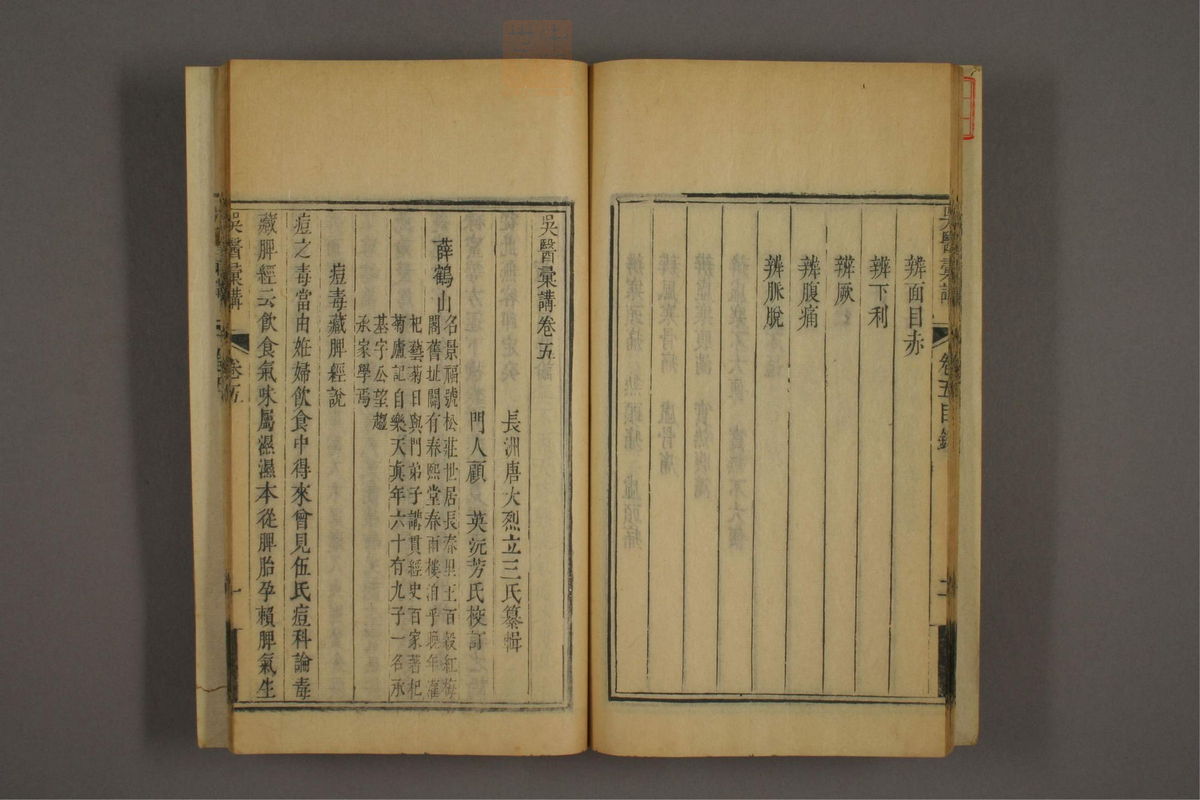 辨面目赤
辨下利
辨厥
辨腹痛
辨脈脫
卷五目錄
二
吳醫彙講卷五
長洲唐大烈立三氏纂輯
門人顧 英沅芳氏校訂
薛鶴山
名景福號松莊世居長春里王百穀紅梅
閣舊址闢有春熙堂春雨樓洎乎晚年灌
杞藝菊日與門弟子講貫經史百家著杞
菊廬記自樂天真年六十有九子一名承
基字公望趨
承家學焉
痘毒藏脾經說
痘之毒當由姙婦飲食中得來曾見伍氏痘科論毒
藏脾經云飲食氣味屬濕濕本從脾胎孕賴脾氣生
吳醫彙講
卷五
一